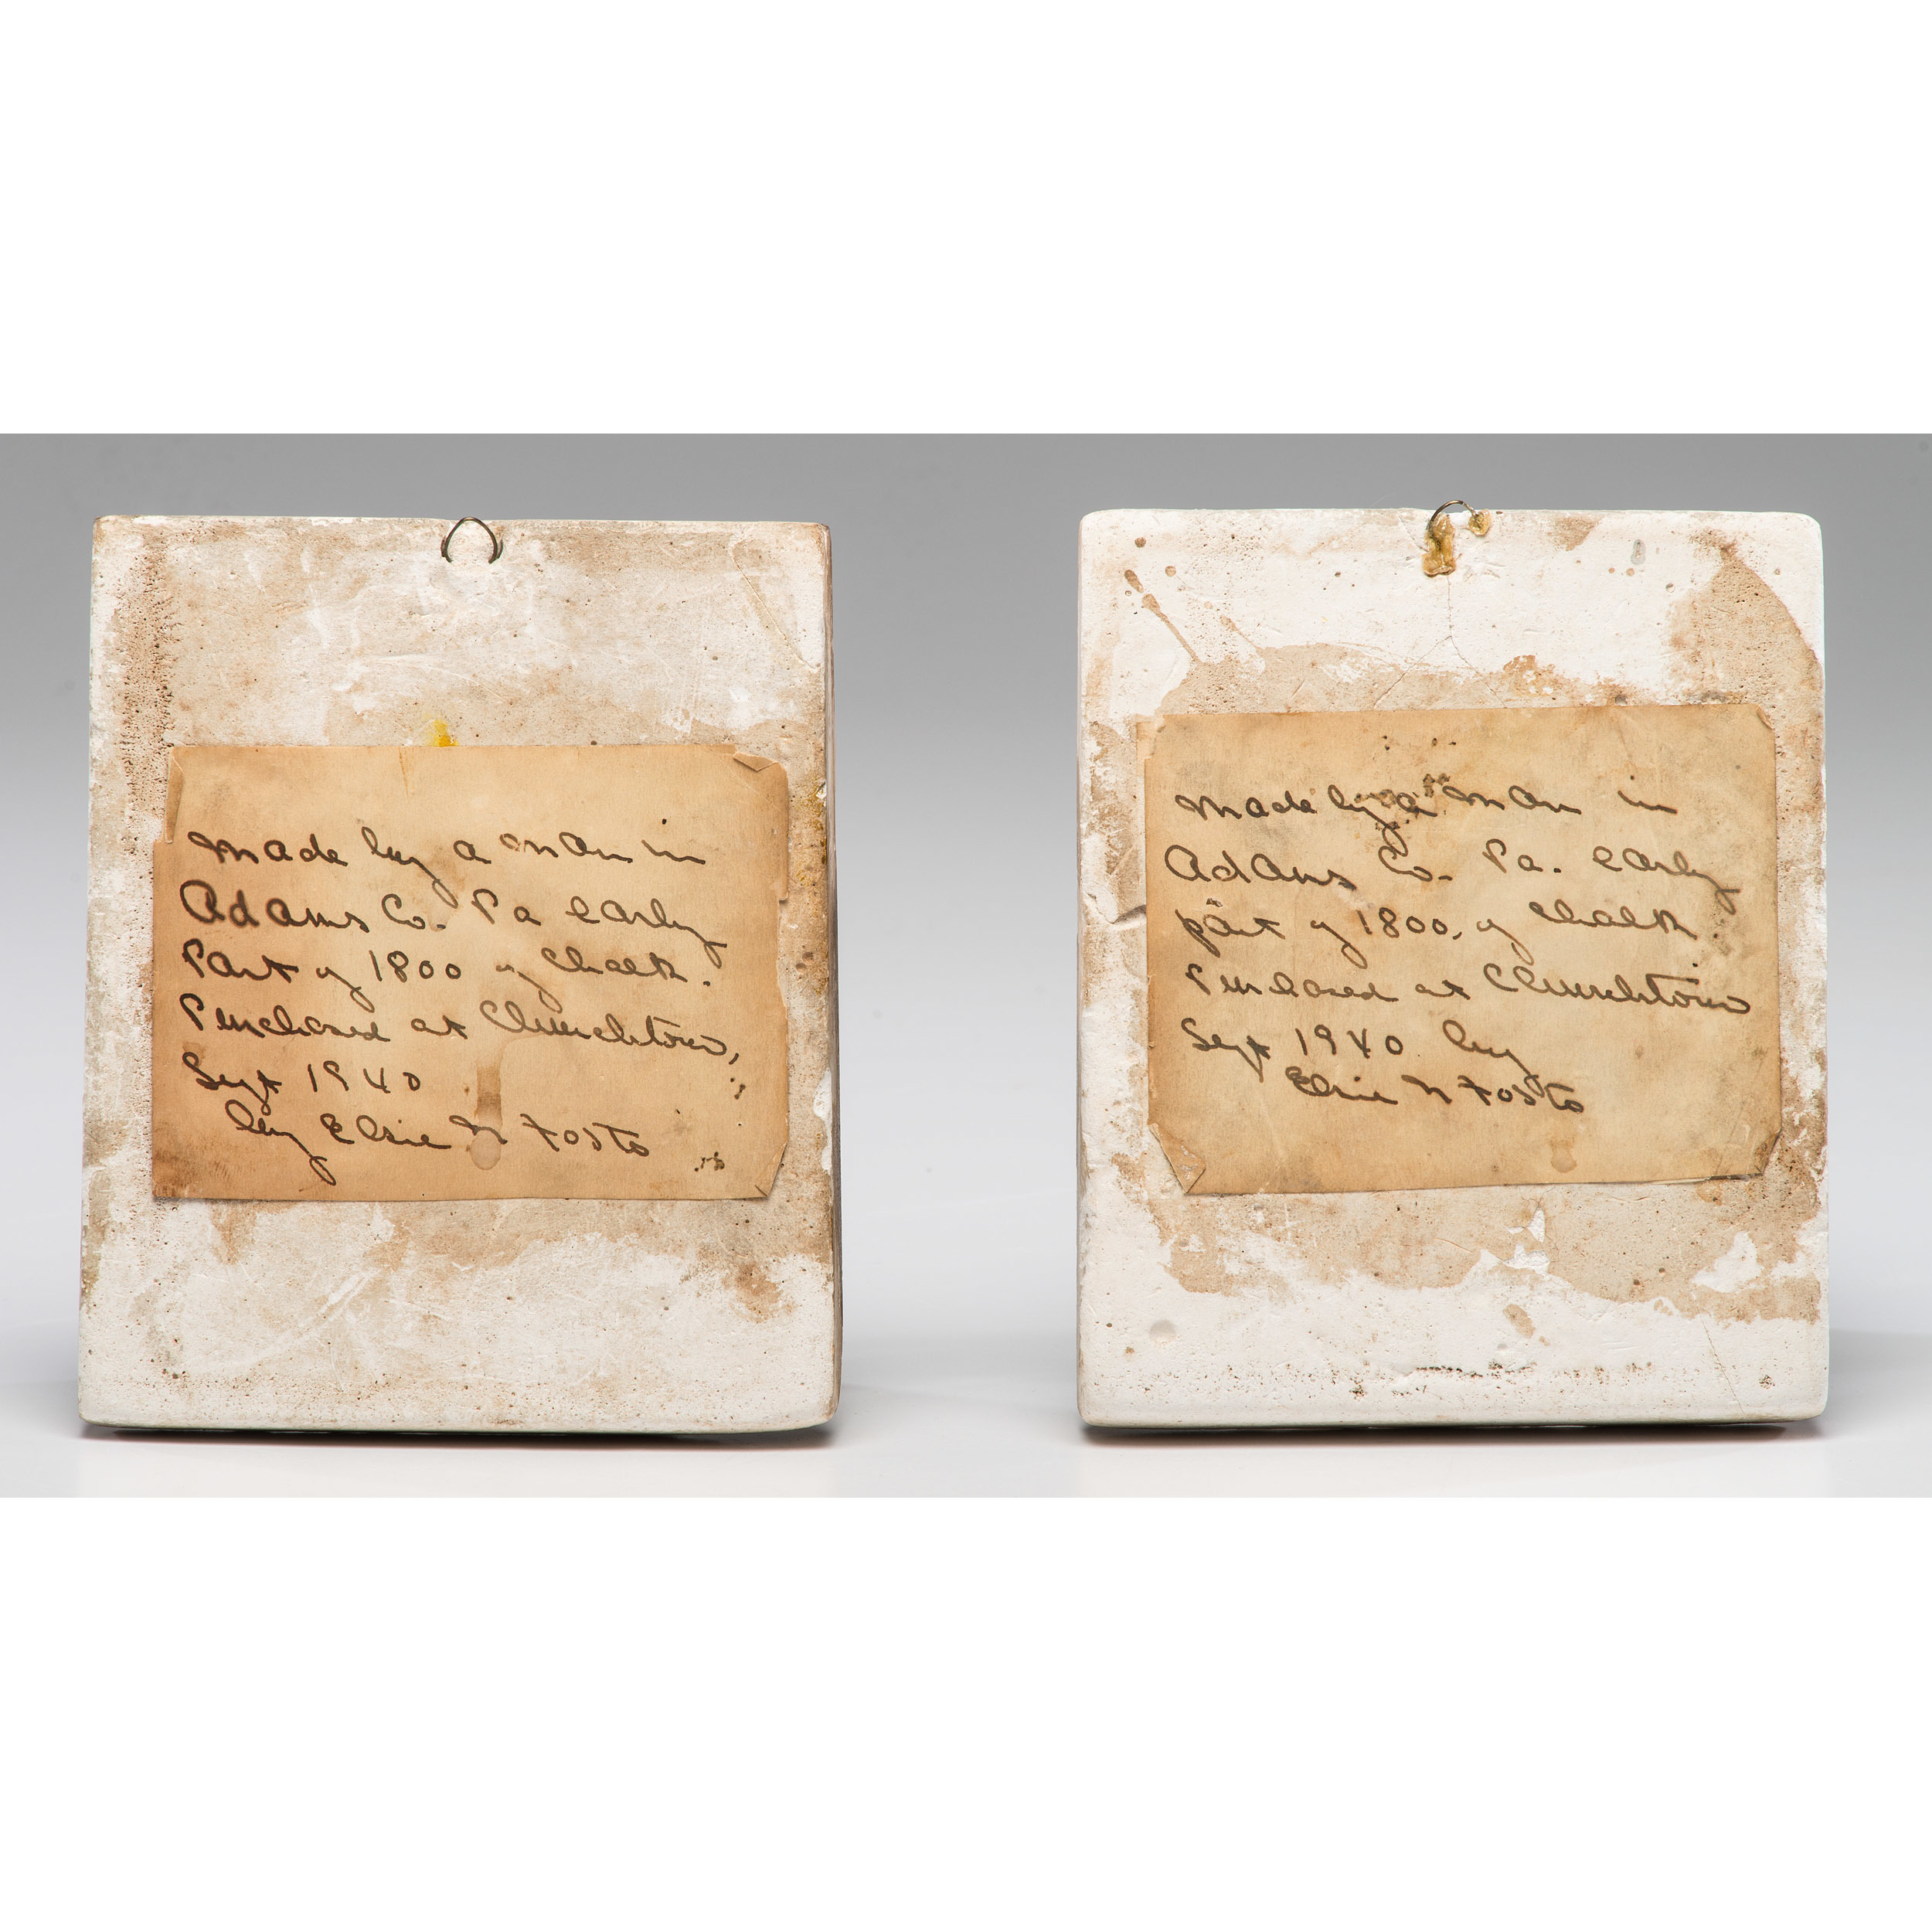 Made by a man in
Adams Co. Pa early
Part of 1800 of chalk.
Purchased at Churchtown,
Sept 1940
by Elsie M Foste
Made by a man in
Adams Co. Pa. early
part of 1800, of chalk
Purchased at Churchtown
Sept 1940 by
Elsie M Foste